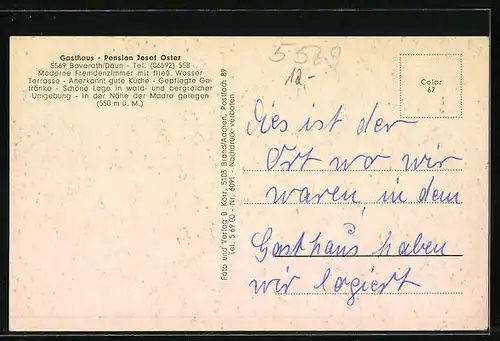 Gasthaus - Pension Josef Oster
5569 Boverath/Daun - Tel. (06592) 558
Moderne Fremdenzimmer mit fließ. Wasser
Terrasse - Anerkannt gute Küche - Gepflegte Ge-
tränke - Schöne Lage in wald- und bergreicher
Umgebung - In der Nähe der Maare gelegen
(550 m ü. M.)
Foto und Verlag B. Korr, 5105 Brand/Aachen, Postfach 89
Tel. 5 69 00 - Nr. 6091 - Nachdruck verboten
5569
12,-
Color
67
Dies ist der
Ort wo wir
waren, in dem
Gasthaus haben
wir logiert